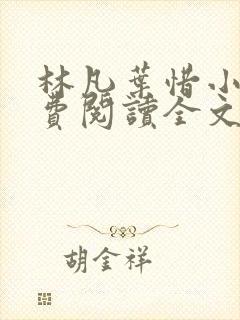 林凡葉惜小
費閱讀全文
胡金祥